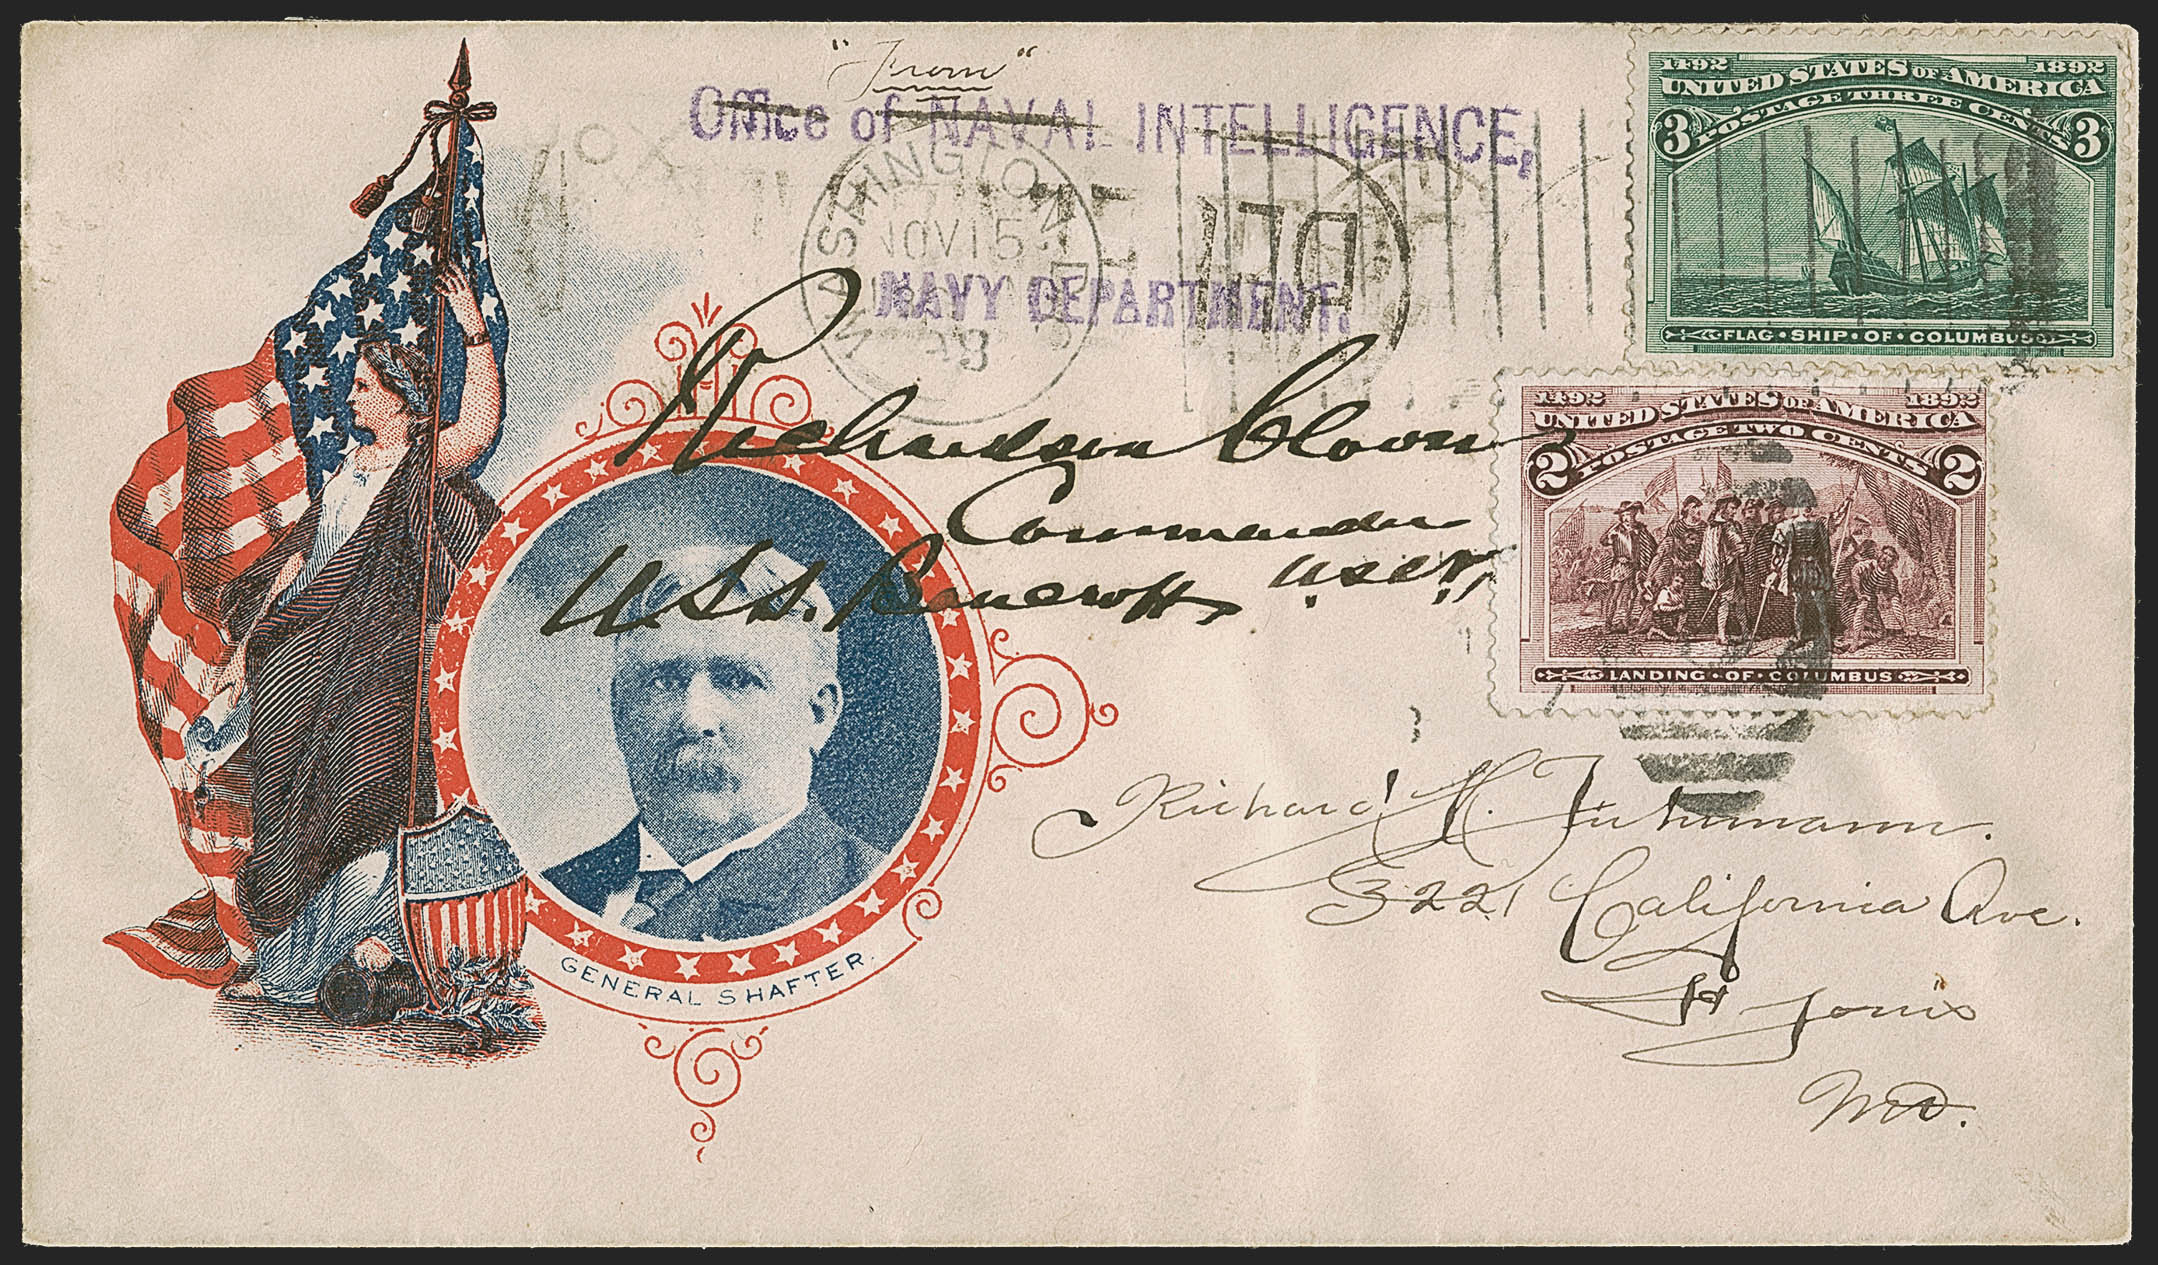 "From"
Office of NAVAL INTELLIGENCE,
NAVY DEPARTMENT.
WASHINGTON, D.C.
NOV 15
98
1492 1892
UNITED STATES OF AMERICA
POSTAGE THREE CENTS
3 3
FLAG·SHIP·OF·COLUMBUS
1492 1892
UNITED STATES OF AMERICA
POSTAGE TWO CENTS
2 2
LANDING·OF·COLUMBUS
Richardson Clover
Commander
U.S.S. Bancroft, U.S.N.,
GENERAL SHAFTER.
Richard H. Fuhrmann.
3221 California Ave.
St Louis
Mo.